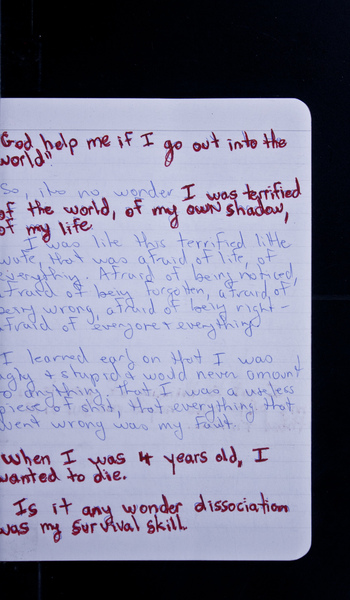 God help me if I go out into the
world"
So, its no wonder I was terrified
of the world, of my own shadow,
of my life.
I was like this terrified little
mute, that was afraid of life, of
everything. Afraid of being noticed,
afraid of being forgotten, afraid of
being wrong, afraid of being right-
afraid of everyone + everything
I learned early on that I was
ugly + stupid & would never amount
to anything, that I was a useless
piece of shit, that everything that
went wrong was my fault.
When I was 4 years old, I
wanted to die.
Is it any wonder dissociation
was my survival skill.